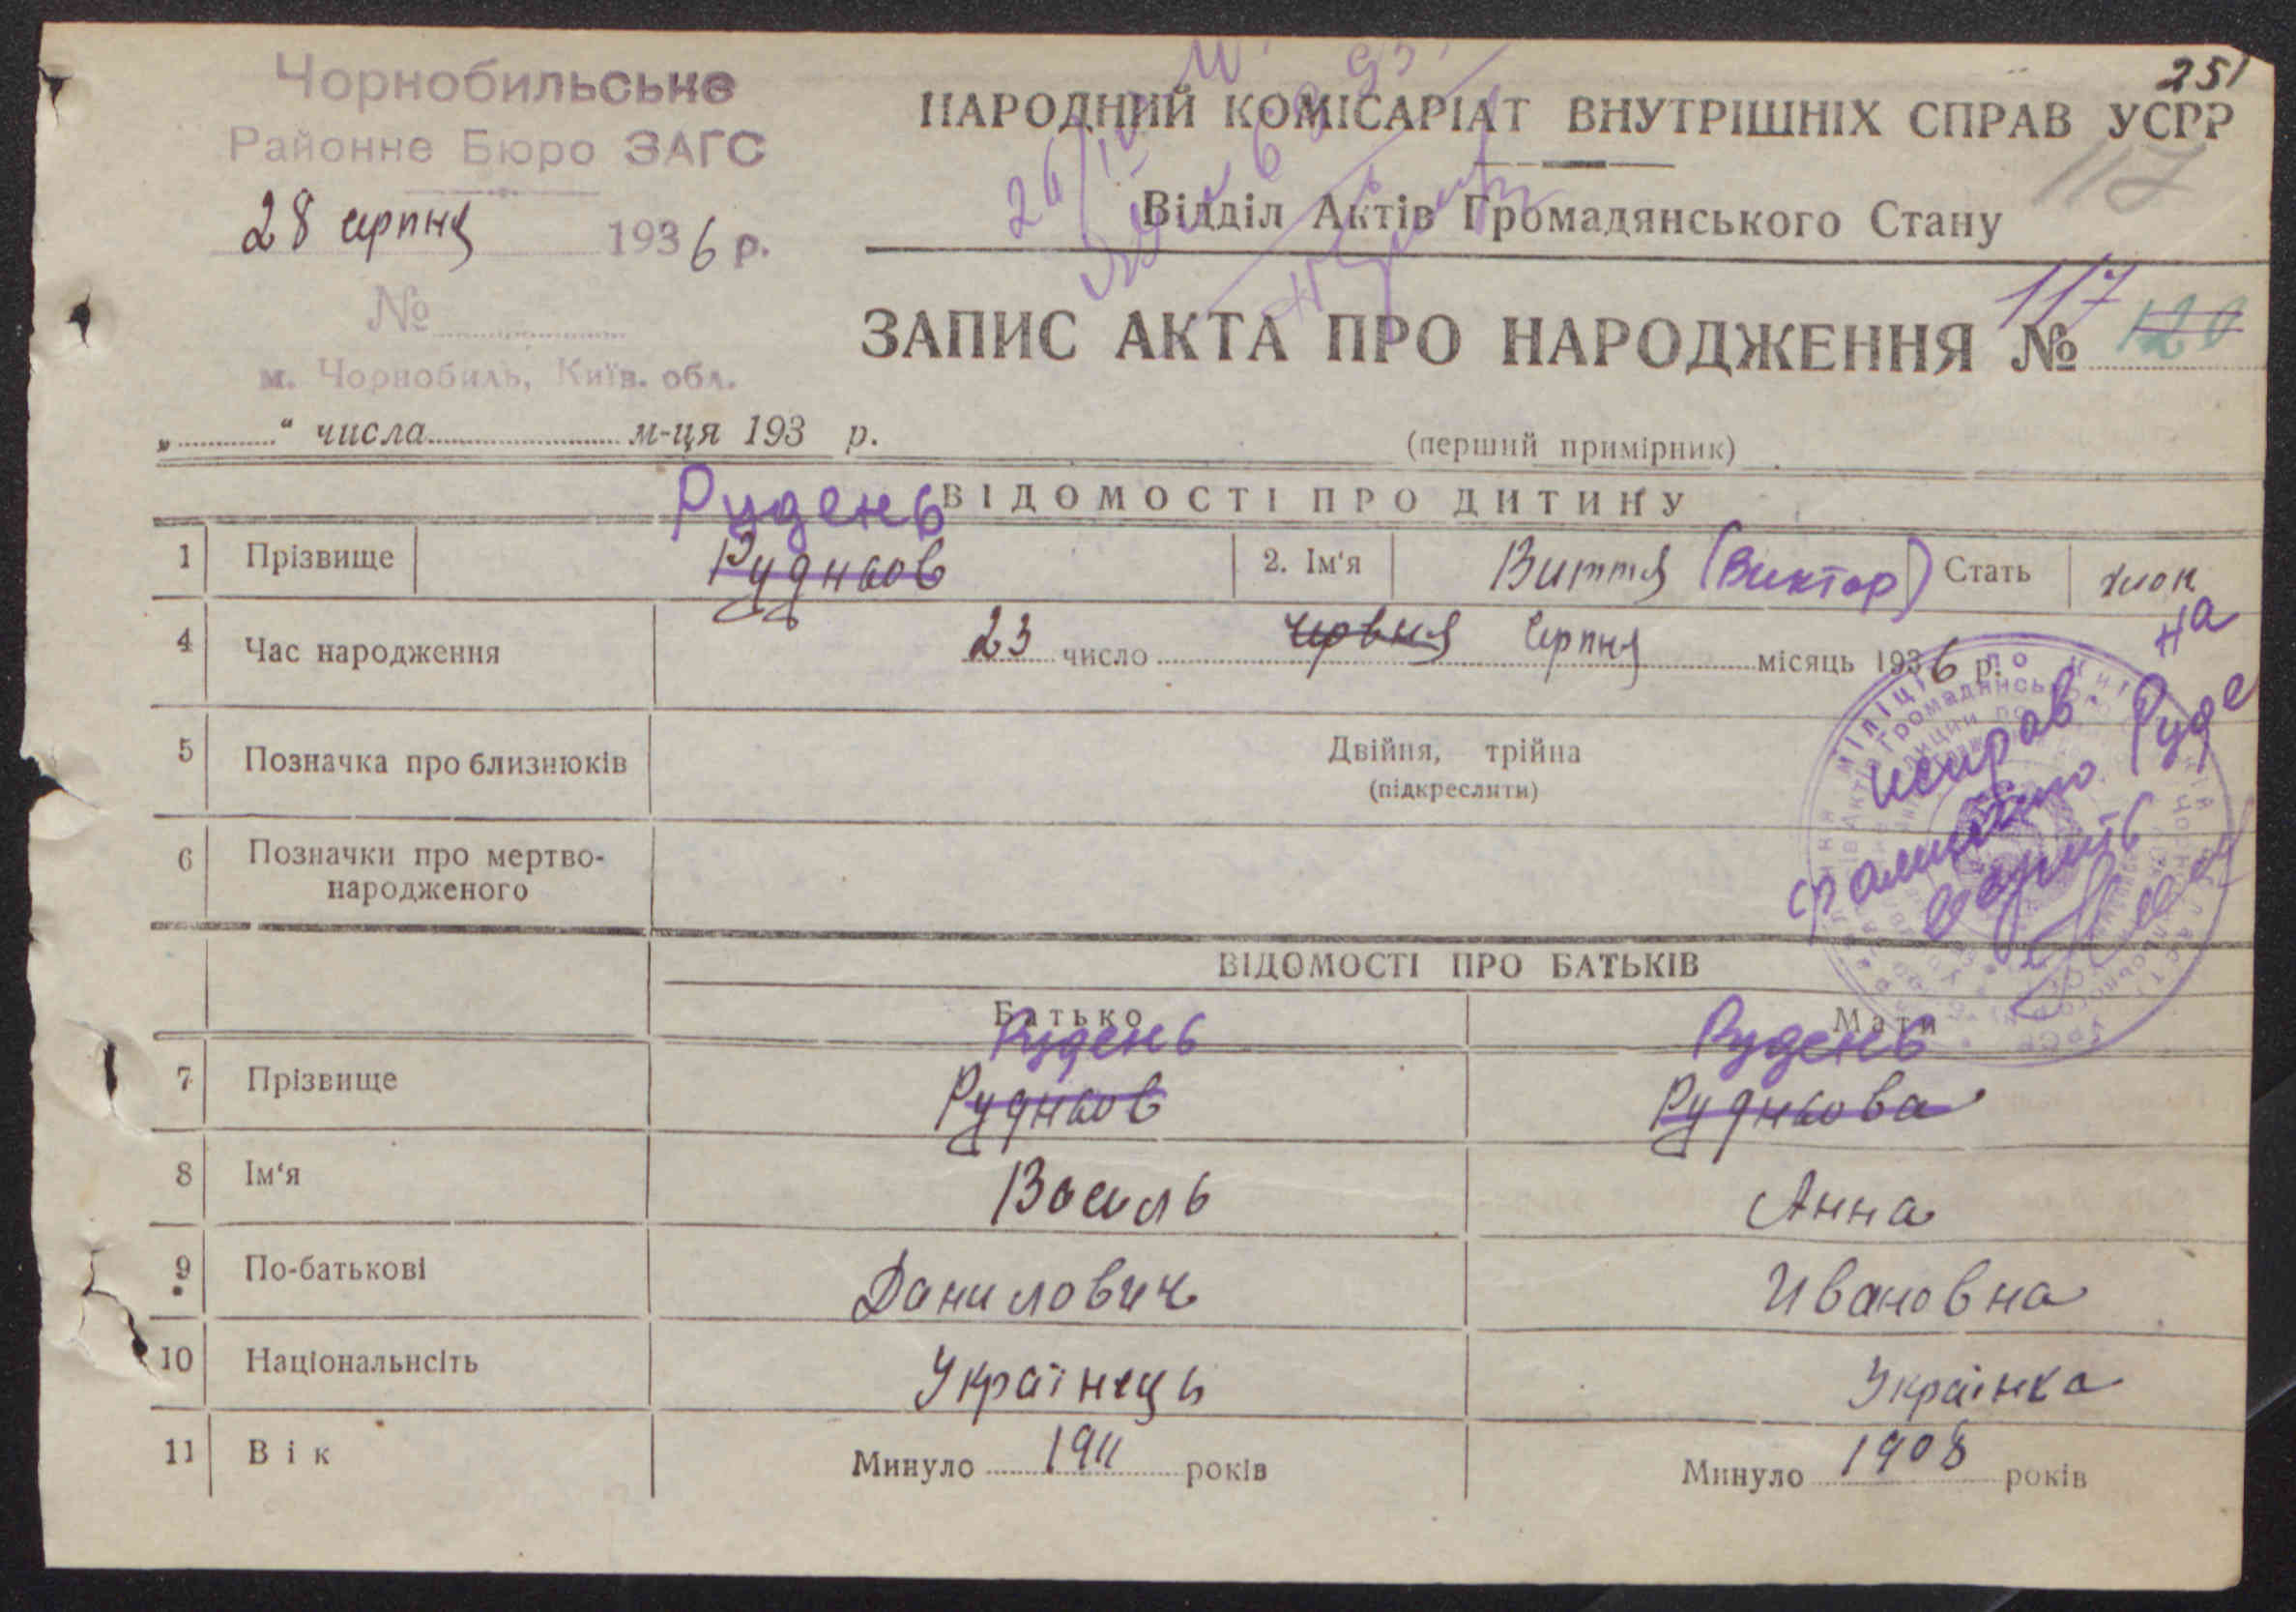 251
Чорнобильське
Районне Бюро ЗАГС
28 серпня 1936 р.
№
м. Чорнобиль, Київ. обл.
„ “ числа м-ця 193 р.
НАРОДНИЙ КОМІСАРІАТ ВНУТРІШНІХ СПРАВ УСРР
117
Відділ Актів Громадянського Стану
ЗАПИС АКТА ПРО НАРОДЖЕННЯ № 117 120
(перший примірник)
ВІДОМОСТІ ПРО ДИТИНУ
Рудень
1 Прізвище Рудньов 2. Ім'я Виття (Виктор) Стать хлоп
4 Час народження 23 число червня Серпня місяць 1936 р.
5 Позначка про близнюків Двійня, трійна
(підкреслити)
6 Позначки про мертво-
народженого
исправ. на
фамилию Руде
ВІДОМОСТІ ПРО БАТЬКІВ
Батько Мати
Рудень Рудень
7 Прізвище Рудньов Рудньова
8 Ім'я Василь Анна
9 По-батькові Данилович Ивановна
10 Національнсіть Українець Українка
11 Вік Минуло 1911 років Минуло 1908 років